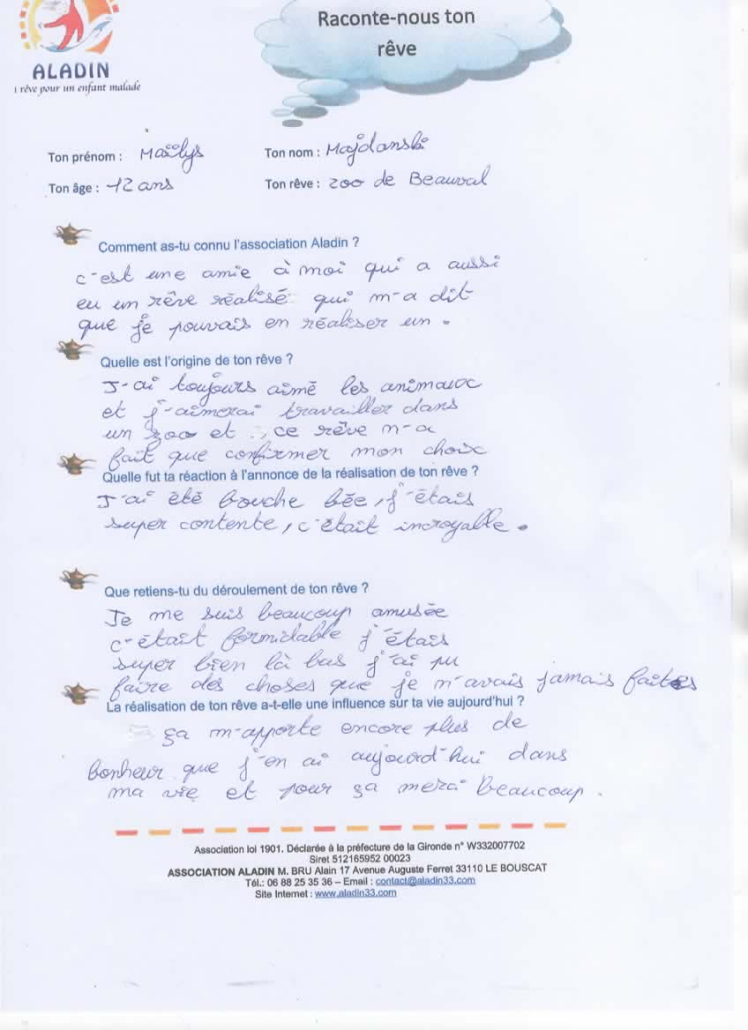 Raconte-nous ton
rêve
ALADIN
rêve pour un enfant malade
Ton prénom : Maïlys
Ton nom : Majdanski
Ton âge : 12 ans
Ton rêve : zoo de Beauval
Comment as-tu connu l'association Aladin ?
c'est une amie à moi qui a aussi
eu un rêve réalisé qui m'a dit
que je pouvais en réaliser un.
Quelle est l'origine de ton rêve ?
J'ai toujours aimé les animaux
et j'aimerai travailler dans
un zoo et ce rêve m'a
fait que confirmer mon choix
Quelle fut ta réaction à l'annonce de la réalisation de ton rêve ?
J'ai été bouche bée, j'étais
super contente, c'était incroyable.
Que retiens-tu du déroulement de ton rêve ?
Je me suis beaucoup amusée
c'était formidable j'étais
super bien là bas j'ai pu
faire des choses que je n'avais jamais faites
La réalisation de ton rêve a-t-elle une influence sur ta vie aujourd'hui ?
ça m'apporte encore plus de
bonheur que j'en ai aujourd'hui dans
ma vie et pour ça merci beaucoup.
Association loi 1901. Déclarée à la préfecture de la Gironde n° W332007702
Siret 512165952 00023
ASSOCIATION ALADIN M. BRU Alain 17 Avenue Auguste Ferret 33110 LE BOUSCAT
Tél.: 06 88 25 35 36 – Email : contact@aladin33.com
Site Internet : www.aladin33.com